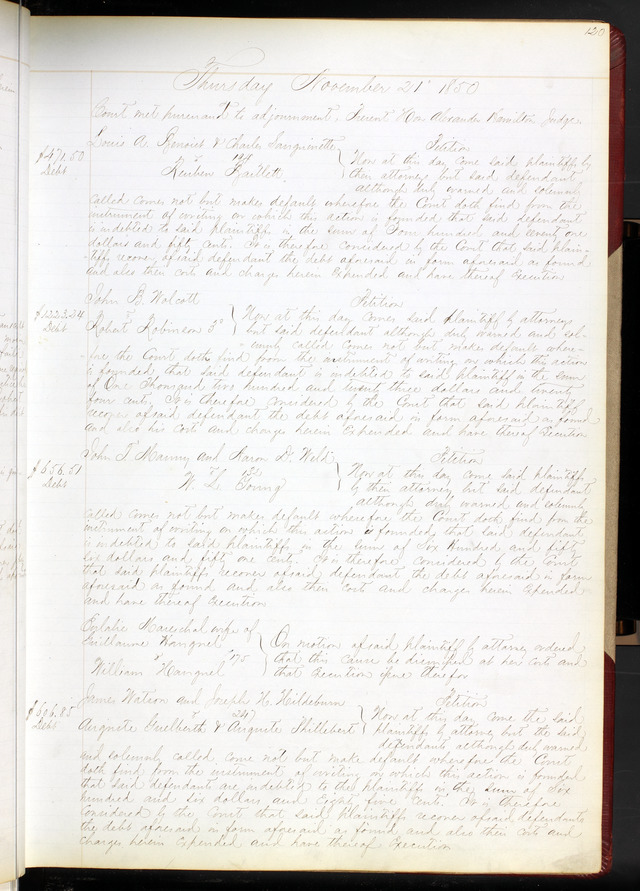 120
Thursday November 21st 1850
Court met pursuant to adjournment. Present Hon. Alexander Hamilton Judge
Louis A. Benoist & Charles Sanguinette
vs
Reuben Bartlett
$471.50
Debt
Petition
Now at this day come said plaintiffs by
their attorney but said defendant
although duly warned and solemnly
called comes not but makes default wherefore the Court doth find from the
instrument of writing on which this action is founded that said defendant
is indebted to said plaintiffs in the sum of Four hundred and seventy one
dollars and fifty cents. It is therefore considered by the Court that said plain-
-tiffs recover of said defendant the debt aforesaid in form aforesaid as found
and also their costs and charges herein Expended and have thereof Execution
John B. Wolcott
Robert Robinson
$1223.24
Debt
Petition
Now at this day comes said plaintiff by attorney
but said defendant although duly warned and sol-
-emnly called comes not but makes default where-
-fore the Court doth find from the instrument of writing on which this action
is founded that said defendant is indebted to said plaintiff in the sum
of One Thousand two hundred and twenty three dollars and twenty
four cents. It is therefore considered by the Court that said plaintiff
recover of said defendant the debt aforesaid in form aforesaid as found
and also his costs and charges herein Expended and have thereof Execution
John T. and Aaron D. Weld
132
W. L. Young
$656.51
Debt
Petition
Now at this day come said plaintiffs
by their attorney but said defendant
although duly warned and solemnly
called comes not but makes default wherefore the Court doth find from the
instrument of writing on which this action is founded that said defendant
is indebted to said plaintiffs in the sum of Six Hundred and fifty
six dollars and fifty one cents. It is therefore considered by the Court
that said plaintiffs recover of said defendant the debt aforesaid in form
aforesaid as found and also their costs and charges herein Expended
and have thereof Execution
Eulalie Mareschal wife of
Guillaume
William
On motion of said plaintiff by attorney ordered
that this cause be dismissed at her cost and
that Execution issue therefor
James Watson and Joseph H. Hildeburn
247
Auguste Guelberth & Auguste
$606.85
Debt
Petition
Now at this day come the said
plaintiffs by attorney but the said
defendants although duly warned
and solemnly called come not but make default wherefore the Court
doth find from the instrument of writing on which this action is founded
that said defendants are indebted to the plaintiffs in the sum of Six
hundred and six dollars and Eighty five cents. It is therefore
considered by the Court that said plaintiffs recover of said defendants
the debt aforesaid in form aforesaid as found and also their costs and
charges herein Expended and have thereof Execution